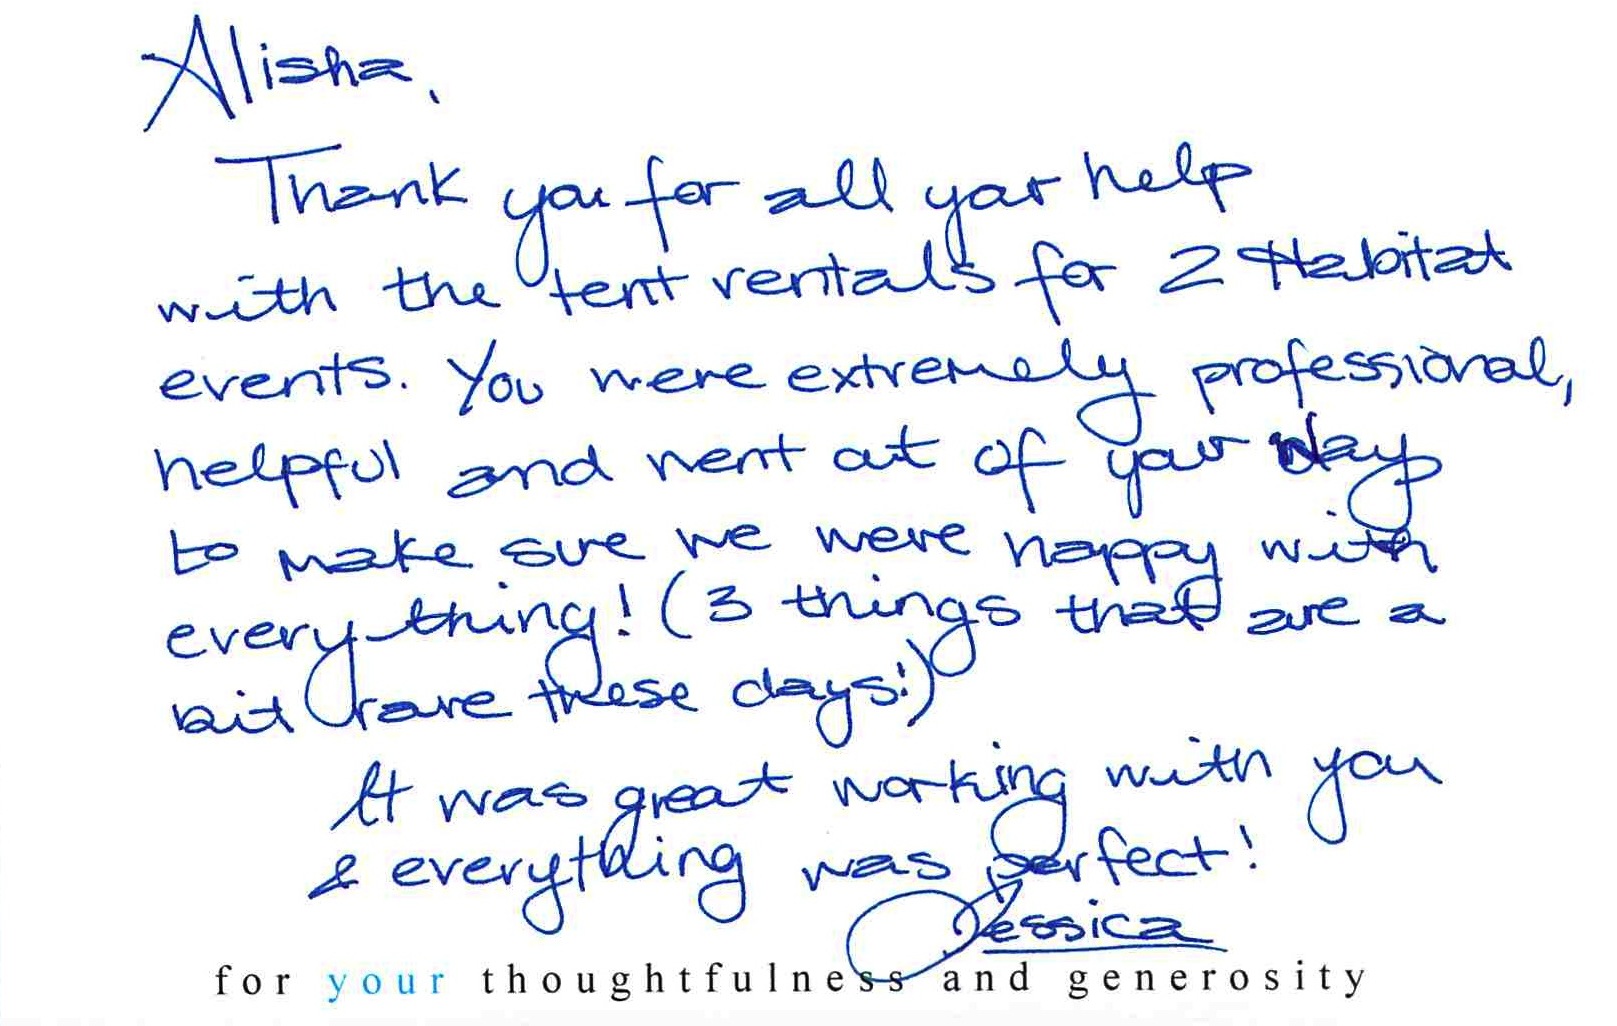 Alisha,
Thank you for all your help
with the tent rentals for 2 Habitat
events. You were extremely professional,
helpful and went out of your way
to make sure we were happy with
everything! (3 things that are a
bit rare these days!)
It was great working with you
& everything was perfect!
Jessica
for your thoughtfulness and generosity